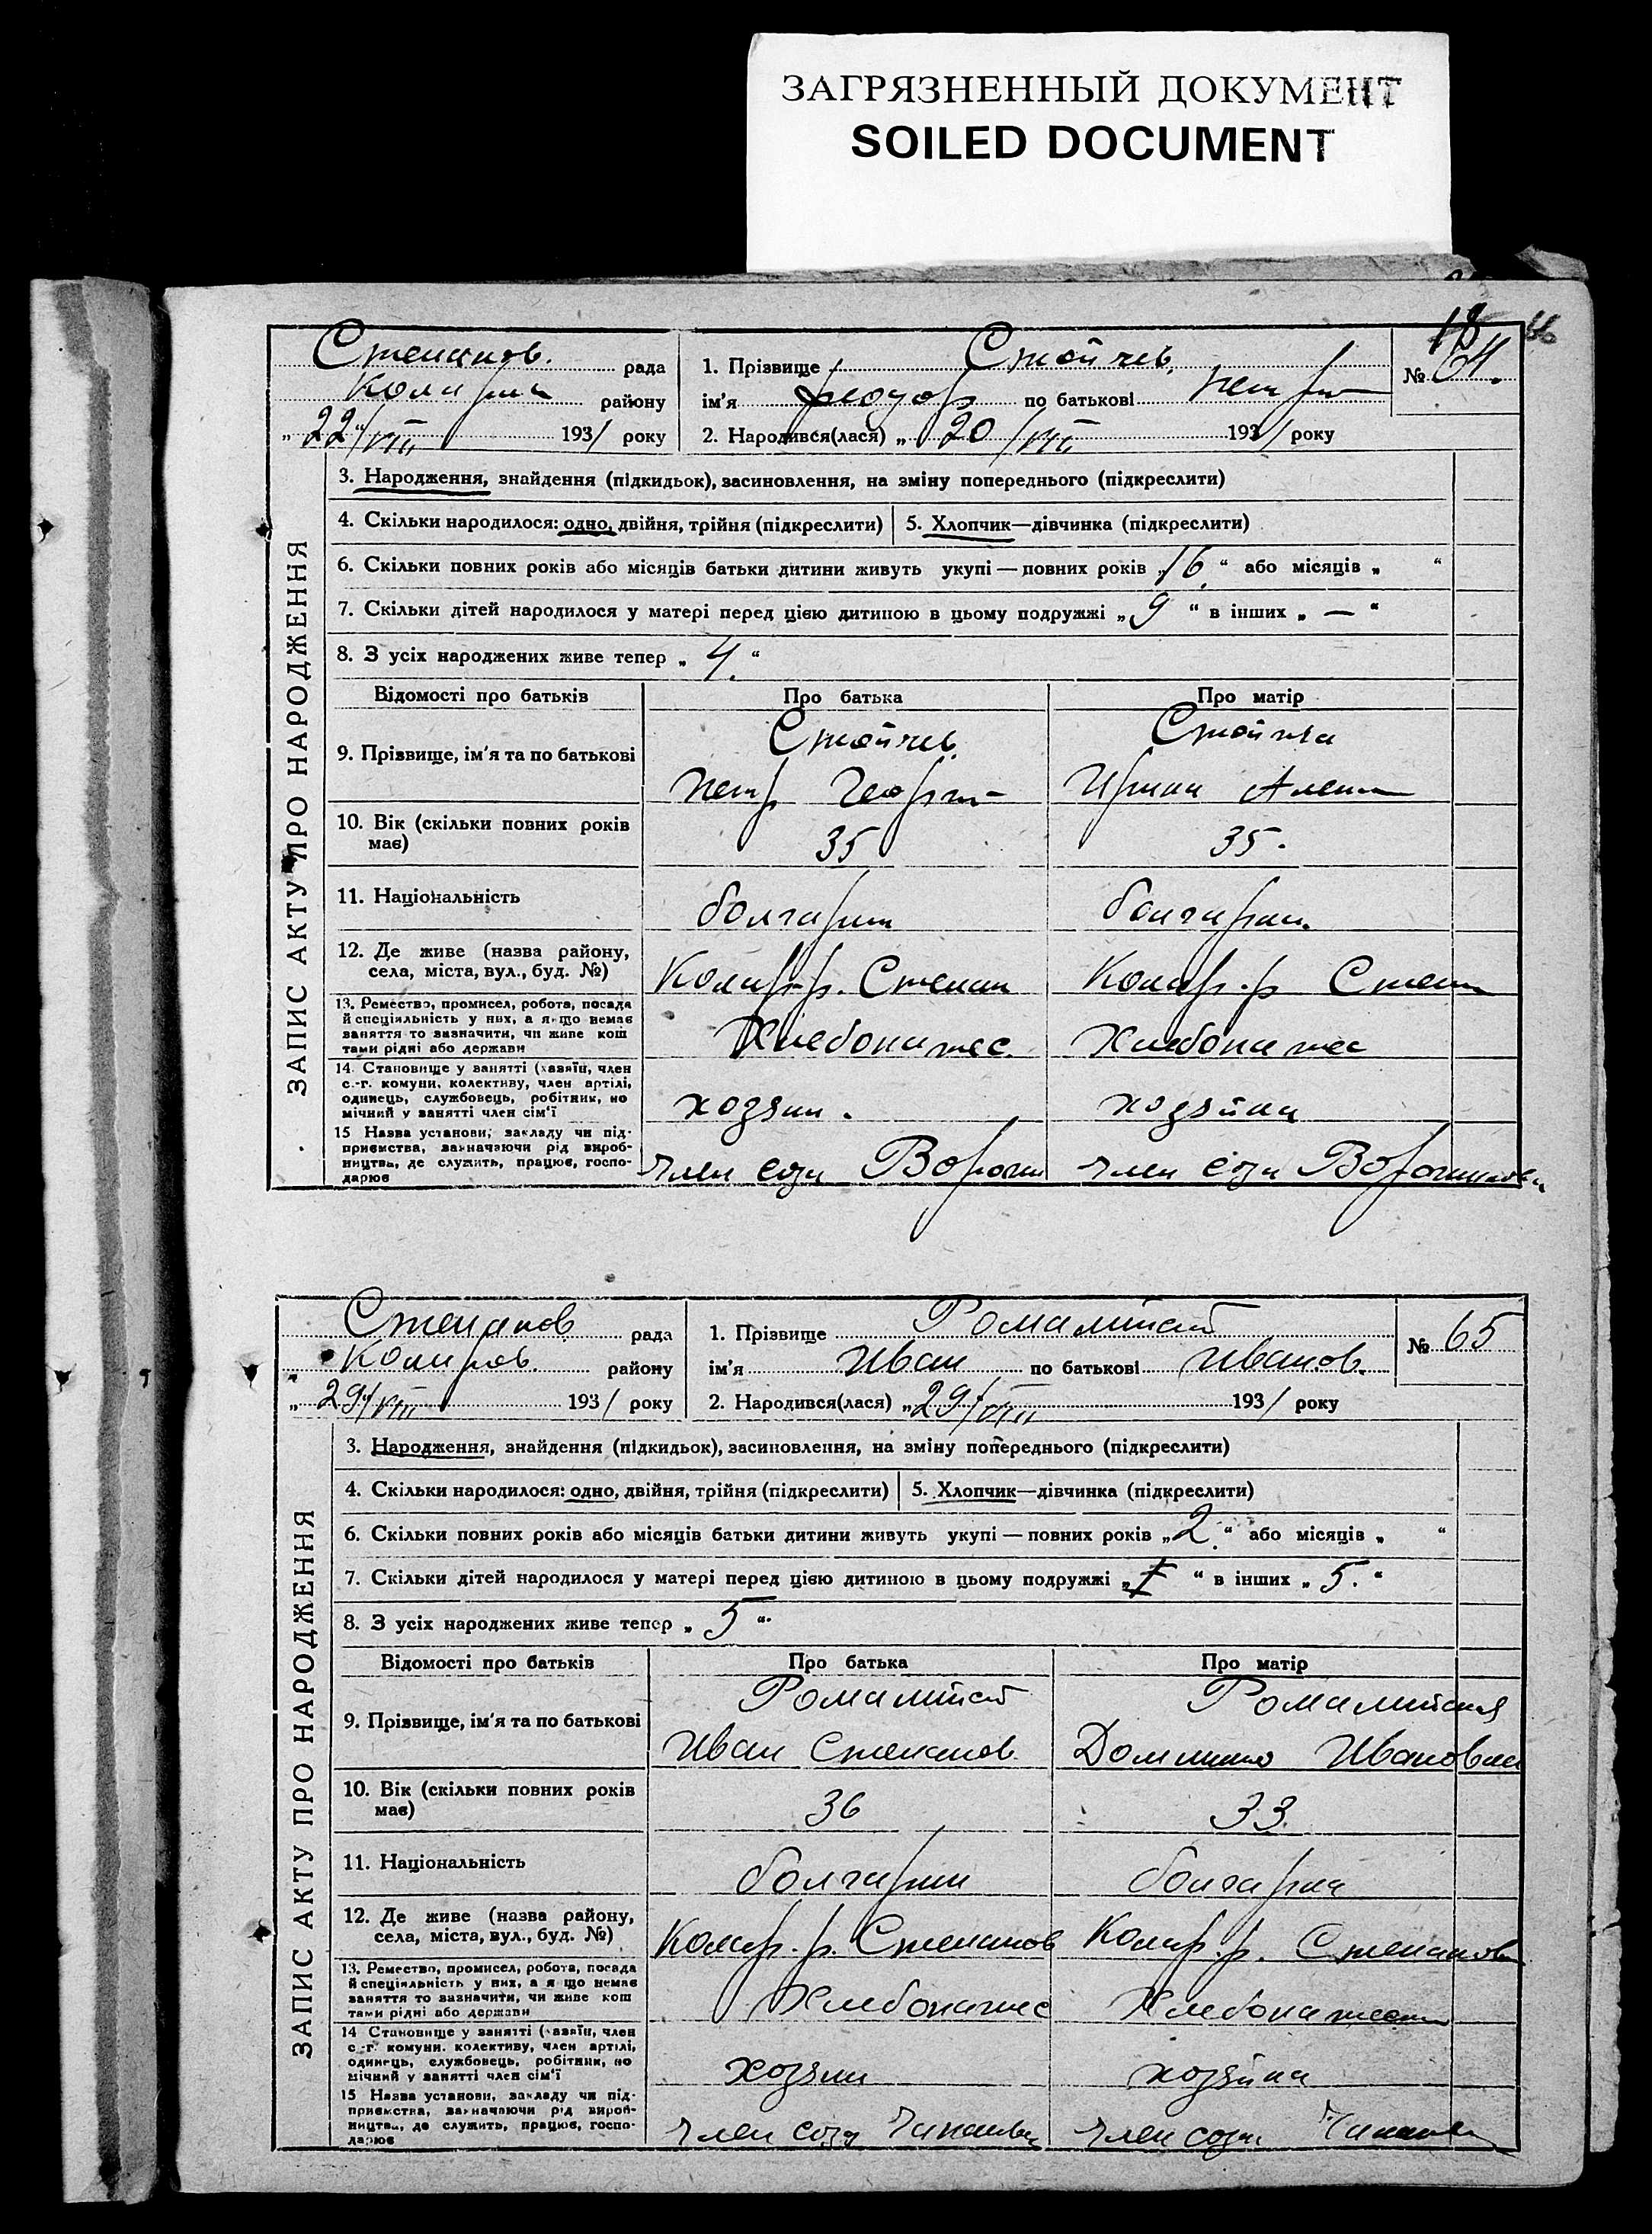 ЗАГРЯЗНЕННЫЙ ДОКУМЕНТ
SOILED DOCUMENT
18
Степанов. рада
району
„ 22 " VIII 1931 року
1. Прізвище Стойчев.
ім'я Феодор по батькові Петр
2. Народився(лася) „ 20/VIII 1931 року
№ 64.
ЗАПИС АКТУ ПРО НАРОДЖЕННЯ
3. Народження, знайдення (підкидьок), засиновлення, на зміну попереднього (підкреслити)
4. Скільки народилося: одно, двійня, трійня (підкреслити)
5. Хлопчик—дівчинка (підкреслити)
6. Скільки повних років або місяців батьки дитини живуть укупі — повних років „16." або місяців „ "
7. Скільки дітей народилося у матері перед цією дитиною в цьому подружжі „9" в інших „—"
8. З усіх народжених живе тепер „4."
Відомості про батьків Про батька Про матір
9. Прізвище, ім'я та по батькові
Стойчев Стойчева
Петр Георги Ирина Алек
10. Вік (скільки повних років має)
35 35.
11. Національність
болгарин болгарка.
12. Де живе (назва району, села, міста, вул., буд. №)
Коларр.р. Степан Колар.р Степ
13. Ремество, промисел, робота, посада
й спеціяльність у них, а якщо немає
заняття то визначити, чи живе кош
тами рідні або держави
Хлебопашес. Хлебопашес
14. Становище у занятті (хазяїн, член
с.-г. комуни, колективу, член артілі,
одинець, службовець, робітник, по
мічний у занятті член сім'ї
хозяин. хозяйка
15 Назва установи, закладу чи під-
приємства, зазначаючи рід вироб-
ництва, де служить, працює, госпо-
дарює
член соза Ворош член соза Ворошилова
Степанов рада
Коларов. району
„ 29 " VIII 1931 року
1. Прізвище
ім'я Иван по батькові Иванов.
2. Народився(лася) „29/VIII 1931 року
№ 65
ЗАПИС АКТУ ПРО НАРОДЖЕННЯ
3. Народження, знайдення (підкидьок), засиновлення, на зміну попереднього (підкреслити)
4. Скільки народилося: одно, двійня, трійня (підкреслити)
5. Хлопчик—дівчинка (підкреслити)
6. Скільки повних років або місяців батьки дитини живуть укупі — повних років „2." або місяців „ "
7. Скільки дітей народилося у матері перед цією дитиною в цьому подружжі „I" в інших „5."
8. З усіх народжених живе тепер „5"
Відомості про батьків Про батька Про матір
9. Прізвище, ім'я та по батькові
Иван Степанов. Ивановна
10. Вік (скільки повних років має)
36 33.
11. Національність
болгарин болгарка
12. Де живе (назва району, села, міста, вул., буд. №)
Колар.р. Степанов Колар.р. Степановк
13. Ремество, промисел, робота, посада
й спеціяльність у них, а якщо немає
заняття то визначити, чи живе кош
тами рідні або держави
Хлебопашес Хлебопашест
14 Становище у занятті (хазяїн, член
с.-г. комуни. колективу, член артілі,
одинець, службовець, робітник, по
мічний у занятті член сім'ї
хозяин хозяйка
15 Назва установи, закладу чи під-
приємства, зазначаючи рід вироб-
ництва, де служить, працює, госпо-
дарює
член соза Чапаева член соза Чапаев